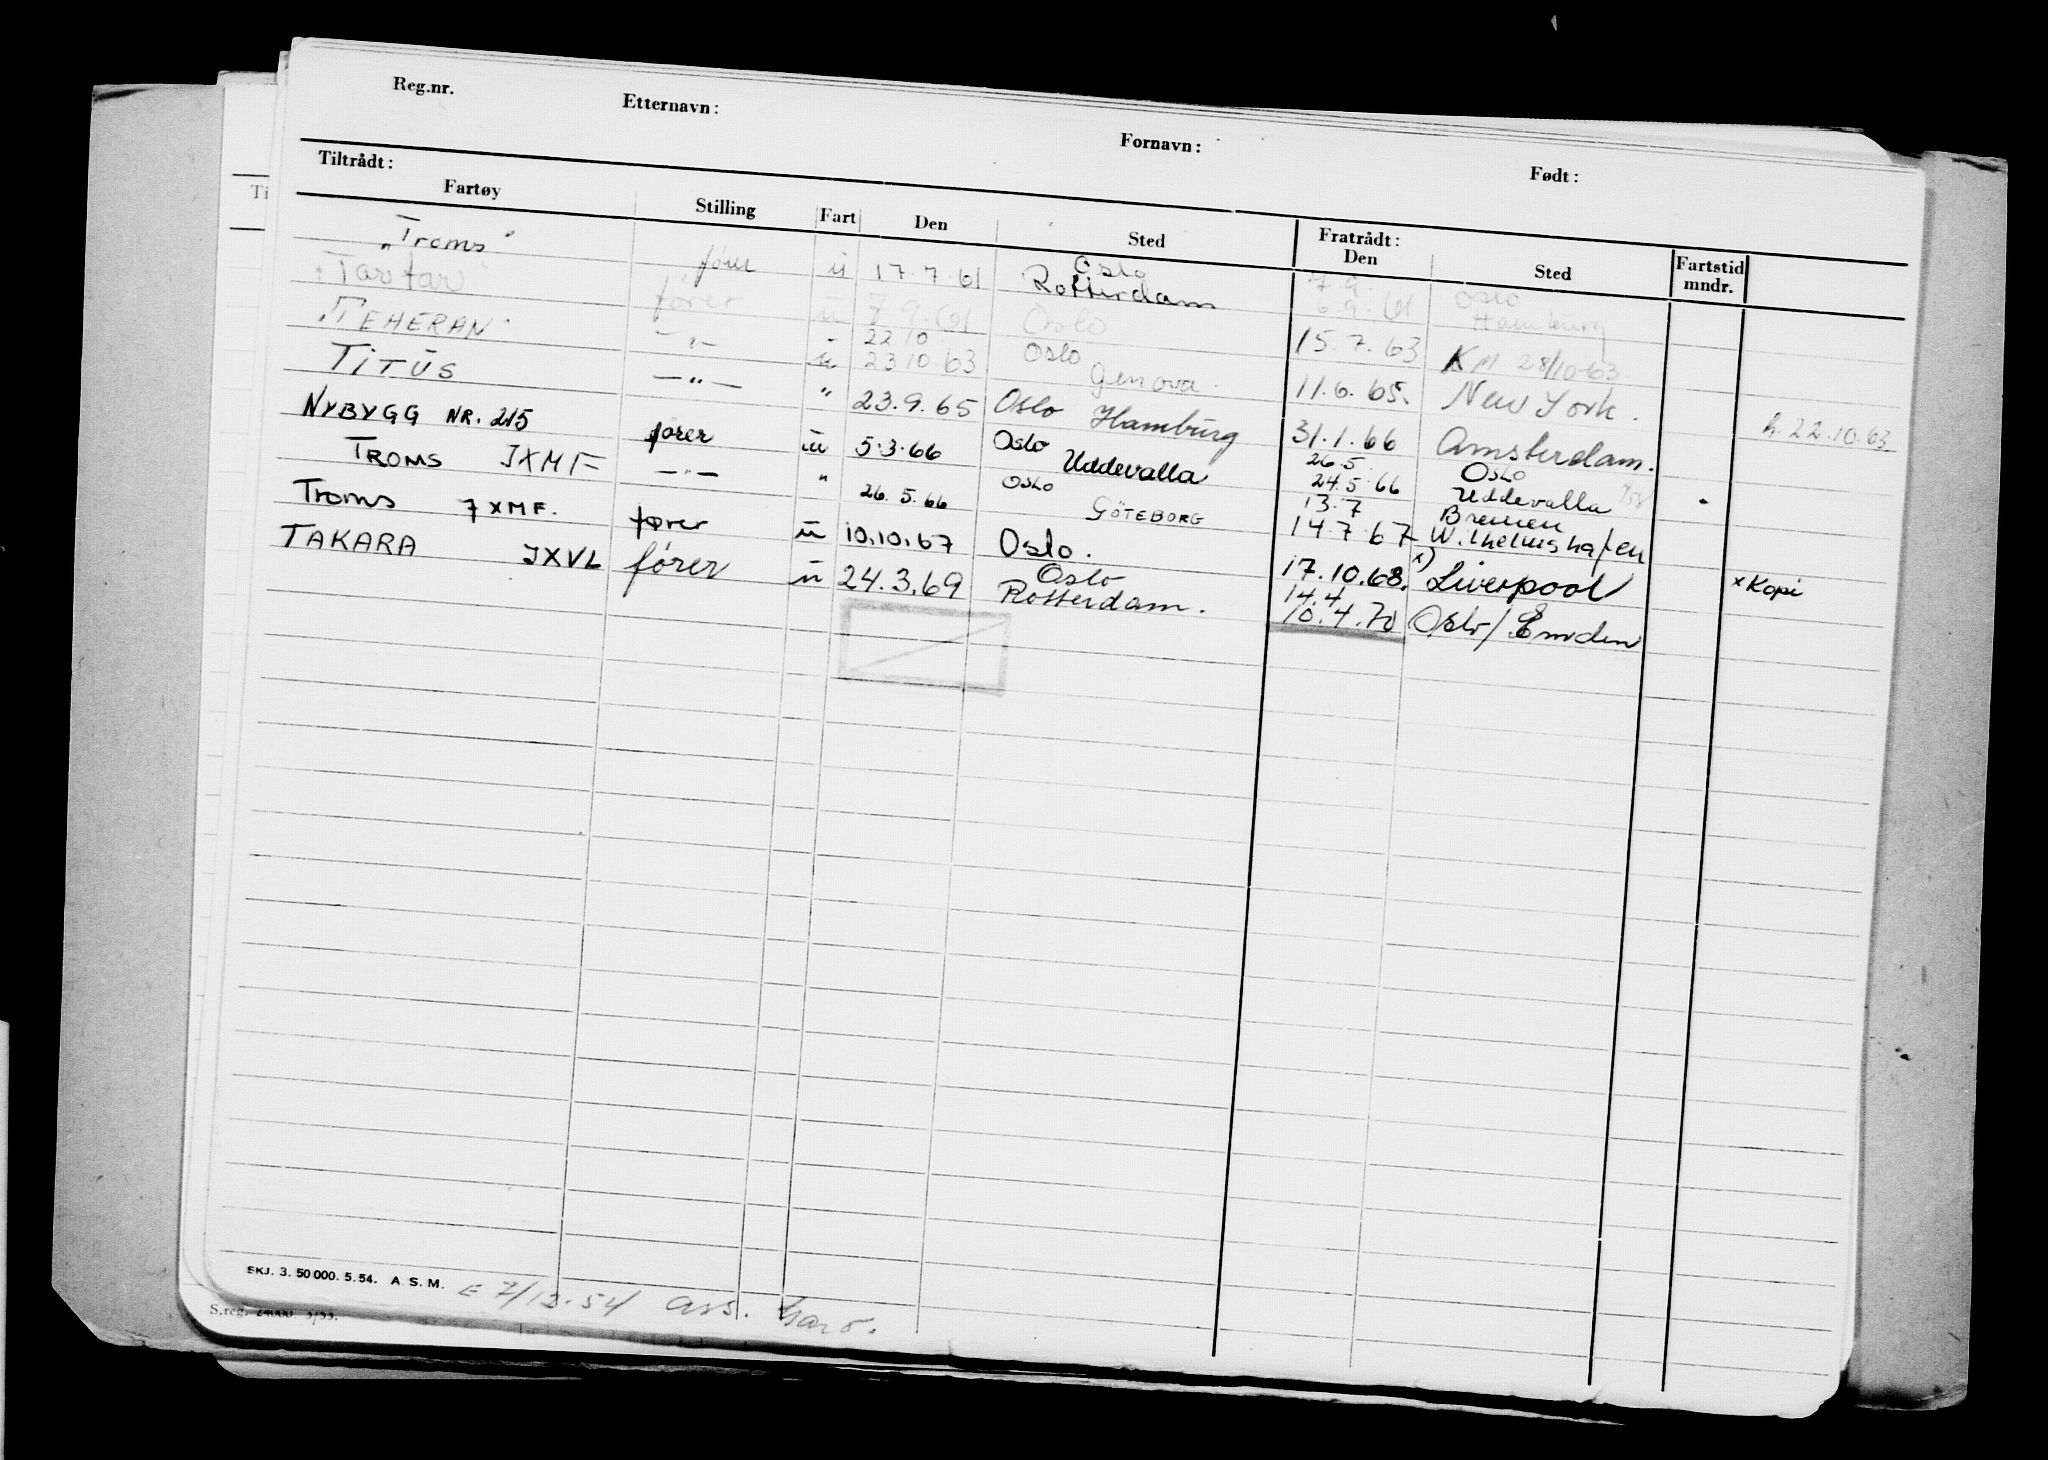 Reg.nr. Etternavn: Fornavn: Født:
Tiltrådt: Fratrådt:
Fartøy Stilling Fart Den Sted Den Sted Fartstid mndr.
"Troms" fører u 17.7.61 Oslo Rotterdam 7.9. 6.9.61 Oslo Hamburg
"Tartar" fører u 7.9.61 Oslo 15.7.63 KM 28/10-63.
"TEHERAN" —"— u 22 10 23 10 63 Oslo Genova. 11.6.65. New York. h. 22.10.63.
TITUS —"— " 23.9.65 Oslo Hamburg 31.1.66 Amsterdam.
NYBYGG NR. 215 fører u 5.3.66 Oslo Uddevalla 26.5. 24.5.66 Oslo Uddevalla
TROMS JXMF —"— " 26.5.66 Oslo GÖTEBORG 13.7 14.7.67 Bremen Wilhelmshafen
Troms 7XMF. fører u 10.10.67 Oslo. 17.10.68. x) Liverpool x Kopi
TAKARA JXVL fører u 24.3.69 Oslo Rotterdam. 14.4 10.4.70 Oslo/Emden
SKJ. 3. 50 000. 5. 54. A. S. M. E 7/12.54 ass.
S.reg. 24000 3/53.
Ti